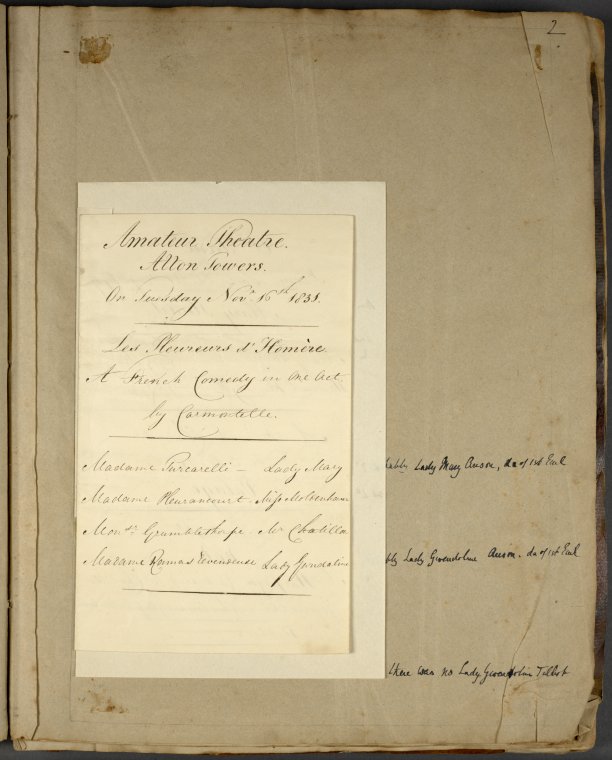 2
Amateur Theatre.
Alton Towers.
On Tuesday Novr. 16th 1831.
Les Pleureurs d'Homère
A French Comedy in One Act
by Carmontelle.
Madame Purcarelli – Lady Mary
Madame Fleurancourt. Miss
Monsr. Grumblethorpe. Mr.
Madame Lady Gendaline
Lady Mary Anson, da of 1st Earl
bly Lady Gwendoline Anson. da of 1st Earl
there was no Lady Gwendolin Talbot